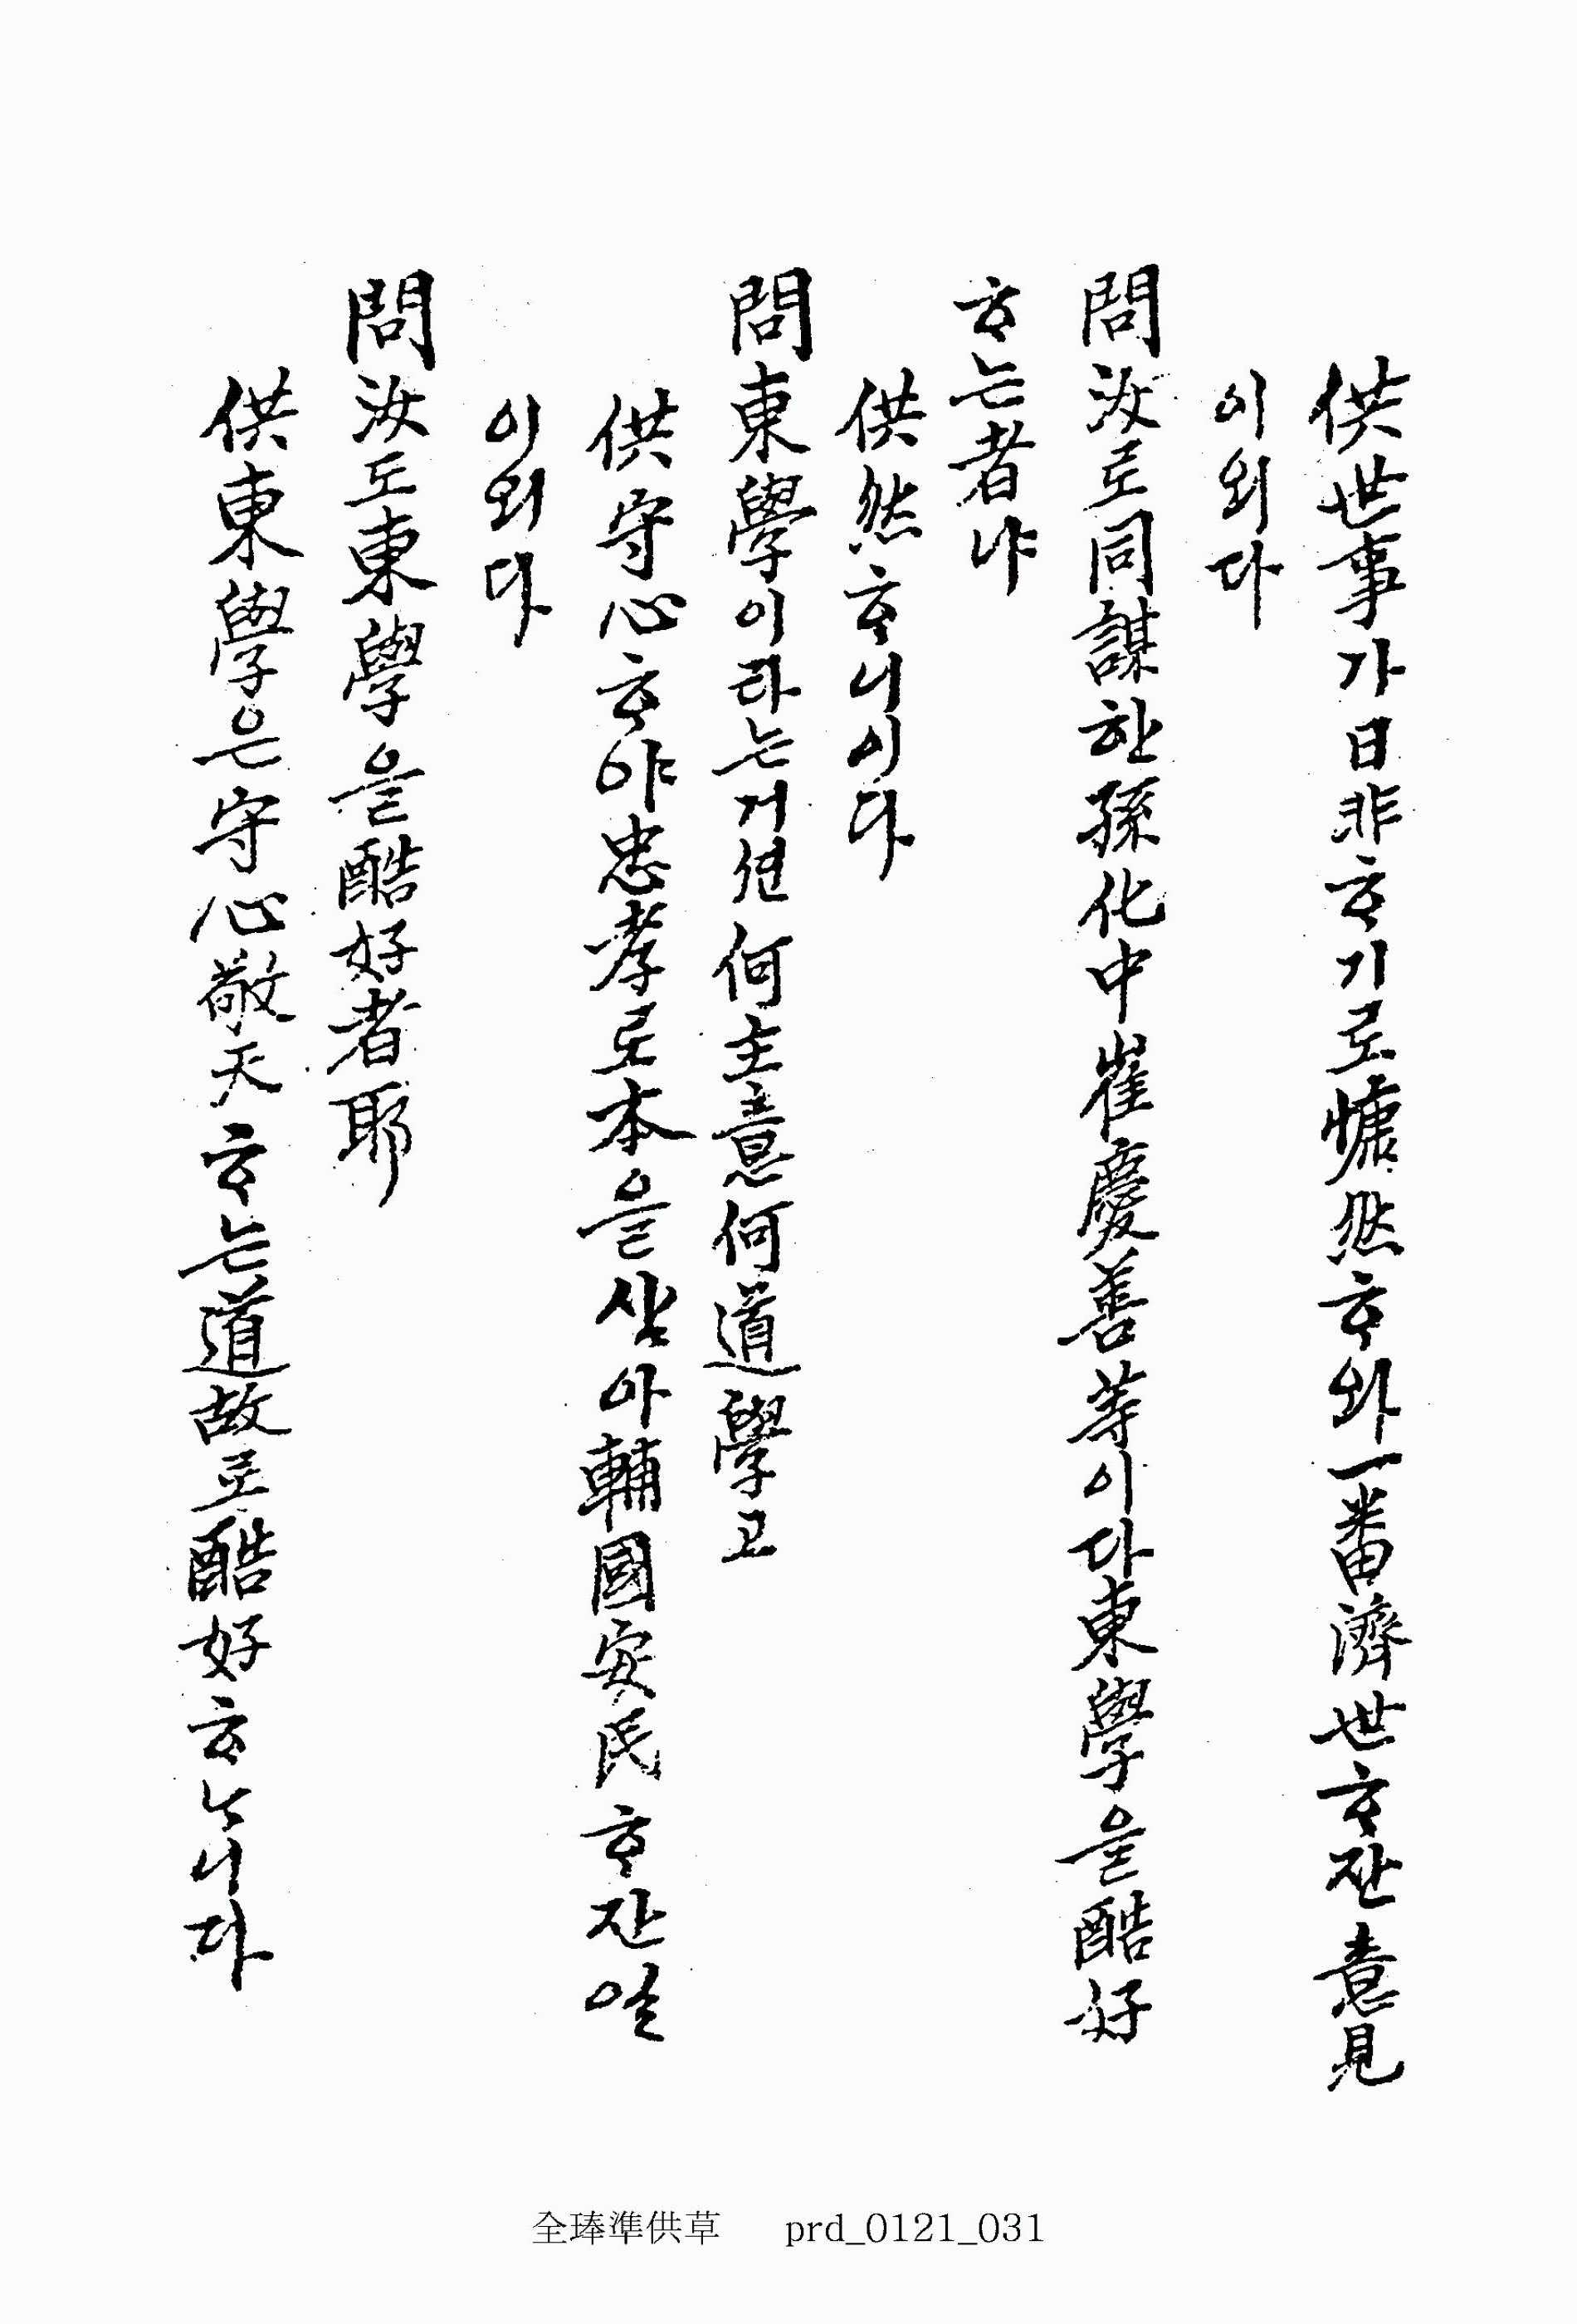 供世事가日非ᄒᆞ기로慷然ᄒᆞ와一番濟世ᄒᆞ잔意見
이외다
問汝로同謀한孫化中崔慶善等이다東學을酷好
ᄒᆞ는者냐
供然ᄒᆞ니이다
問東學이라는거션何主意何道學고
供守心ᄒᆞ야忠孝로本을삼아輔國安民ᄒᆞ잔일
이외다
問汝도東學을酷好者耶
供東學은守心敬天ᄒᆞ는道故로酷好ᄒᆞᄂᆞ니다
全琫準供草 prd_0121_031